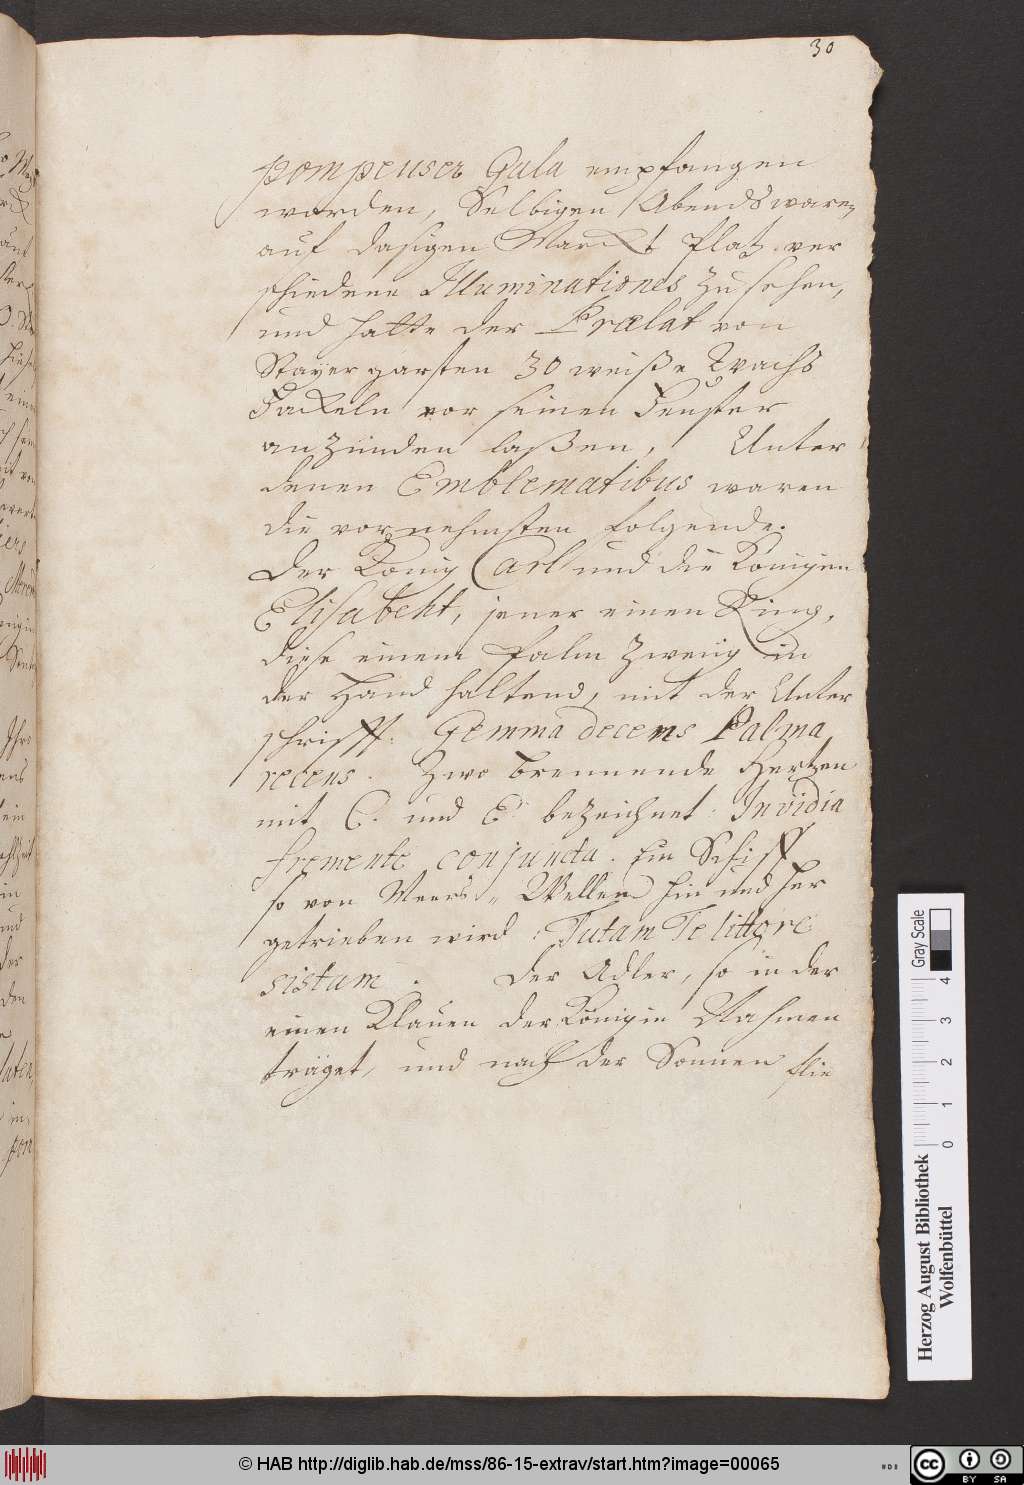 30
pompeuser Gala empfangen
worden, Selbigen Abends waren
auf dasigen Marckt Platz ver
schiedene Illuminationes zu sehen,
und hatte der Prælat von
Stayer garsten 30 weiße Wachs
Fackeln vor seinen Fenster
anzünden laßen, Unter
denen Emblematibus waren
die vornehmsten folgende.
Der König Carl und die Königin
Elisabeht, jener einen Ring,
diese einem Palm Zweig in
der Hand haltend, mit der Unter
schrifft: Gemma decens Palma
recens. Zwo brennende Hertzen
mit C. und E. bezeichnet: Invidia
fremente conjuncta. Ein Schiff
so von Meers-Wellen hin und her
getrieben wird: Tutam Te littore
sistam. Der Adler, so in der
einen Klauen der Königin Nahmen
träget, und nach der Sonnen flie
Herzog August Bibliothek
Wolfenbüttel
0 1 2 3 4
Gray Scale
© HAB http://diglib.hab.de/mss/86-15-extrav/start.htm?image=00065
cc BY SA